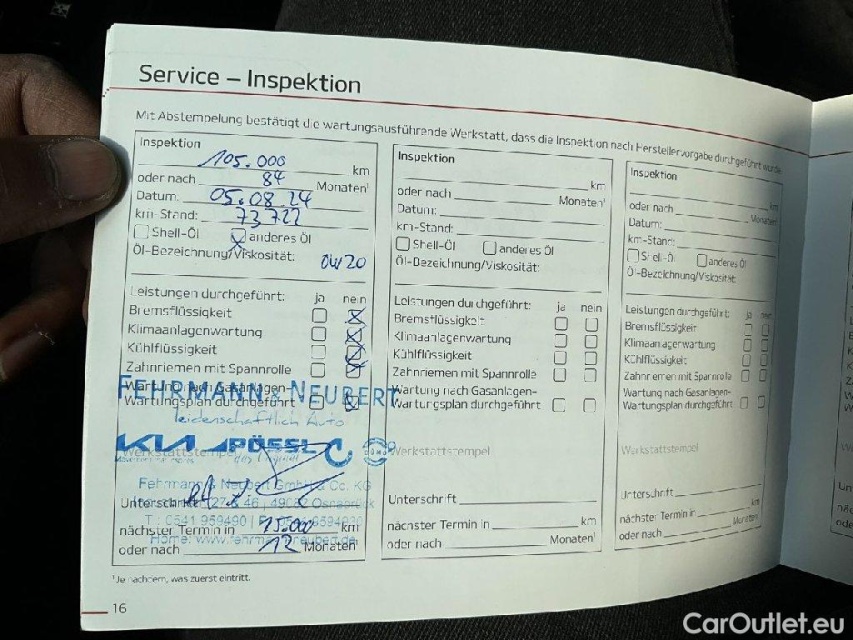 Service – Inspektion
Mit Abstempelung bestätigt die wartungsausführende Werkstatt, dass die Inspektion nach Herstellervorgabe durchgeführt wurde
Inspektion
105.000 km
oder nach 84 Monaten¹
Datum: 05.08.24
km-Stand: 73722
Shell-Öl anderes Öl
Öl-Bezeichnung/Viskosität:
0W20
Leistungen durchgeführt: ja nein
Bremsflüssigkeit
Klimaanlagenwartung
Kühlflüssigkeit
Zahnriemen mit Spannrolle
Wartung nach Gasanlagen-
Wartungsplan durchgeführt
FEHRMANN & NEUBERT
leidenschaftlich Auto
KIA PÖSSL
Werkstattstempel
Fehrmann & Neubert GmbH & Co. KG
Unterschrift
49082 Osnabrück
T.: 0541 959490
nächster Termin in 15.000 km
Home: www.fehrmann-neubert.de
oder nach 12 Monaten¹
Inspektion
km
oder nach Monaten¹
Datum:
km-Stand:
Shell-Öl anderes Öl
Öl-Bezeichnung/Viskosität:
Leistungen durchgeführt: ja nein
Bremsflüssigkeit
Klimaanlagenwartung
Kühlflüssigkeit
Zahnriemen mit Spannrolle
Wartung nach Gasanlagen-
Wartungsplan durchgeführt
Werkstattstempel
Unterschrift
nächster Termin in km
oder nach Monaten¹
Inspektion
km
oder nach Monaten¹
Datum:
km-Stand:
Shell-Öl anderes Öl
Öl-Bezeichnung/Viskosität:
Leistungen durchgeführt: ja nein
Bremsflüssigkeit
Klimaanlagenwartung
Kühlflüssigkeit
Zahnriemen mit Spannrolle
Wartung nach Gasanlagen-
Wartungsplan durchgeführt
Werkstattstempel
Unterschrift
nächster Termin in km
oder nach Monaten¹
¹Je nachdem, was zuerst eintritt.
16
CarOutlet.eu